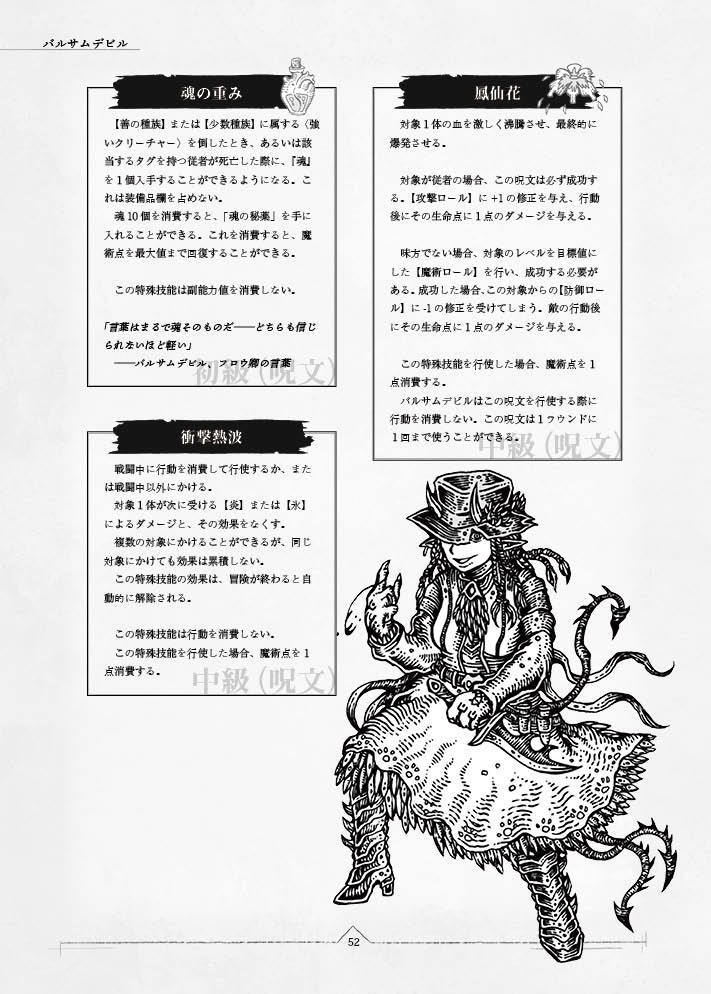 バルサムデビル
魂の重み
【善の種族】または【少数種族】に属する〈強
いクリーチャー〉を倒したとき、あるいは該
当するタグを持つ従者が死亡した際に、『魂』
を１個入手することができるようになる。こ
れは装備品欄を占めない。
魂 10 個を消費すると、「魂の秘薬」を手に
入れることができる。これを消費すると、魔
術点を最大値まで回復することができる。
この特殊技能は副能力値を消費しない。
「言葉はまるで魂そのものだ――どちらも信じ
られないほど軽い」
――バルサムデビル、フロウ卿の言葉
初級（呪文）
衝撃熱波
戦闘中に行動を消費して行使するか、また
は戦闘中以外にかける。
対象１体が次に受ける【炎】または【氷】
によるダメージと、その効果をなくす。
複数の対象にかけることができるが、同じ
対象にかけても効果は累積しない。
この特殊技能の効果は、冒険が終わると自
動的に解除される。
この特殊技能は行動を消費しない。
この特殊技能を行使した場合、魔術点を１
点消費する。
中級（呪文）
鳳仙花
対象１体の血を激しく沸騰させ、最終的に
爆発させる。
対象が従者の場合、この呪文は必ず成功す
る。【攻撃ロール】に +1 の修正を与え、行動
後にその生命点に１点のダメージを与える。
味方でない場合、対象のレベルを目標値に
した【魔術ロール】を行い、成功する必要が
ある。成功した場合、この対象からの【防御ロー
ル】に -1 の修正を受けてしまう。敵の行動後
にその生命点に１点のダメージを与える。
この特殊技能を行使した場合、魔術点を１
点消費する。
バルサムデビルはこの呪文を行使する際に
行動を消費しない。この呪文は１ラウンドに
１回まで使うことができる。
中級（呪文）
52